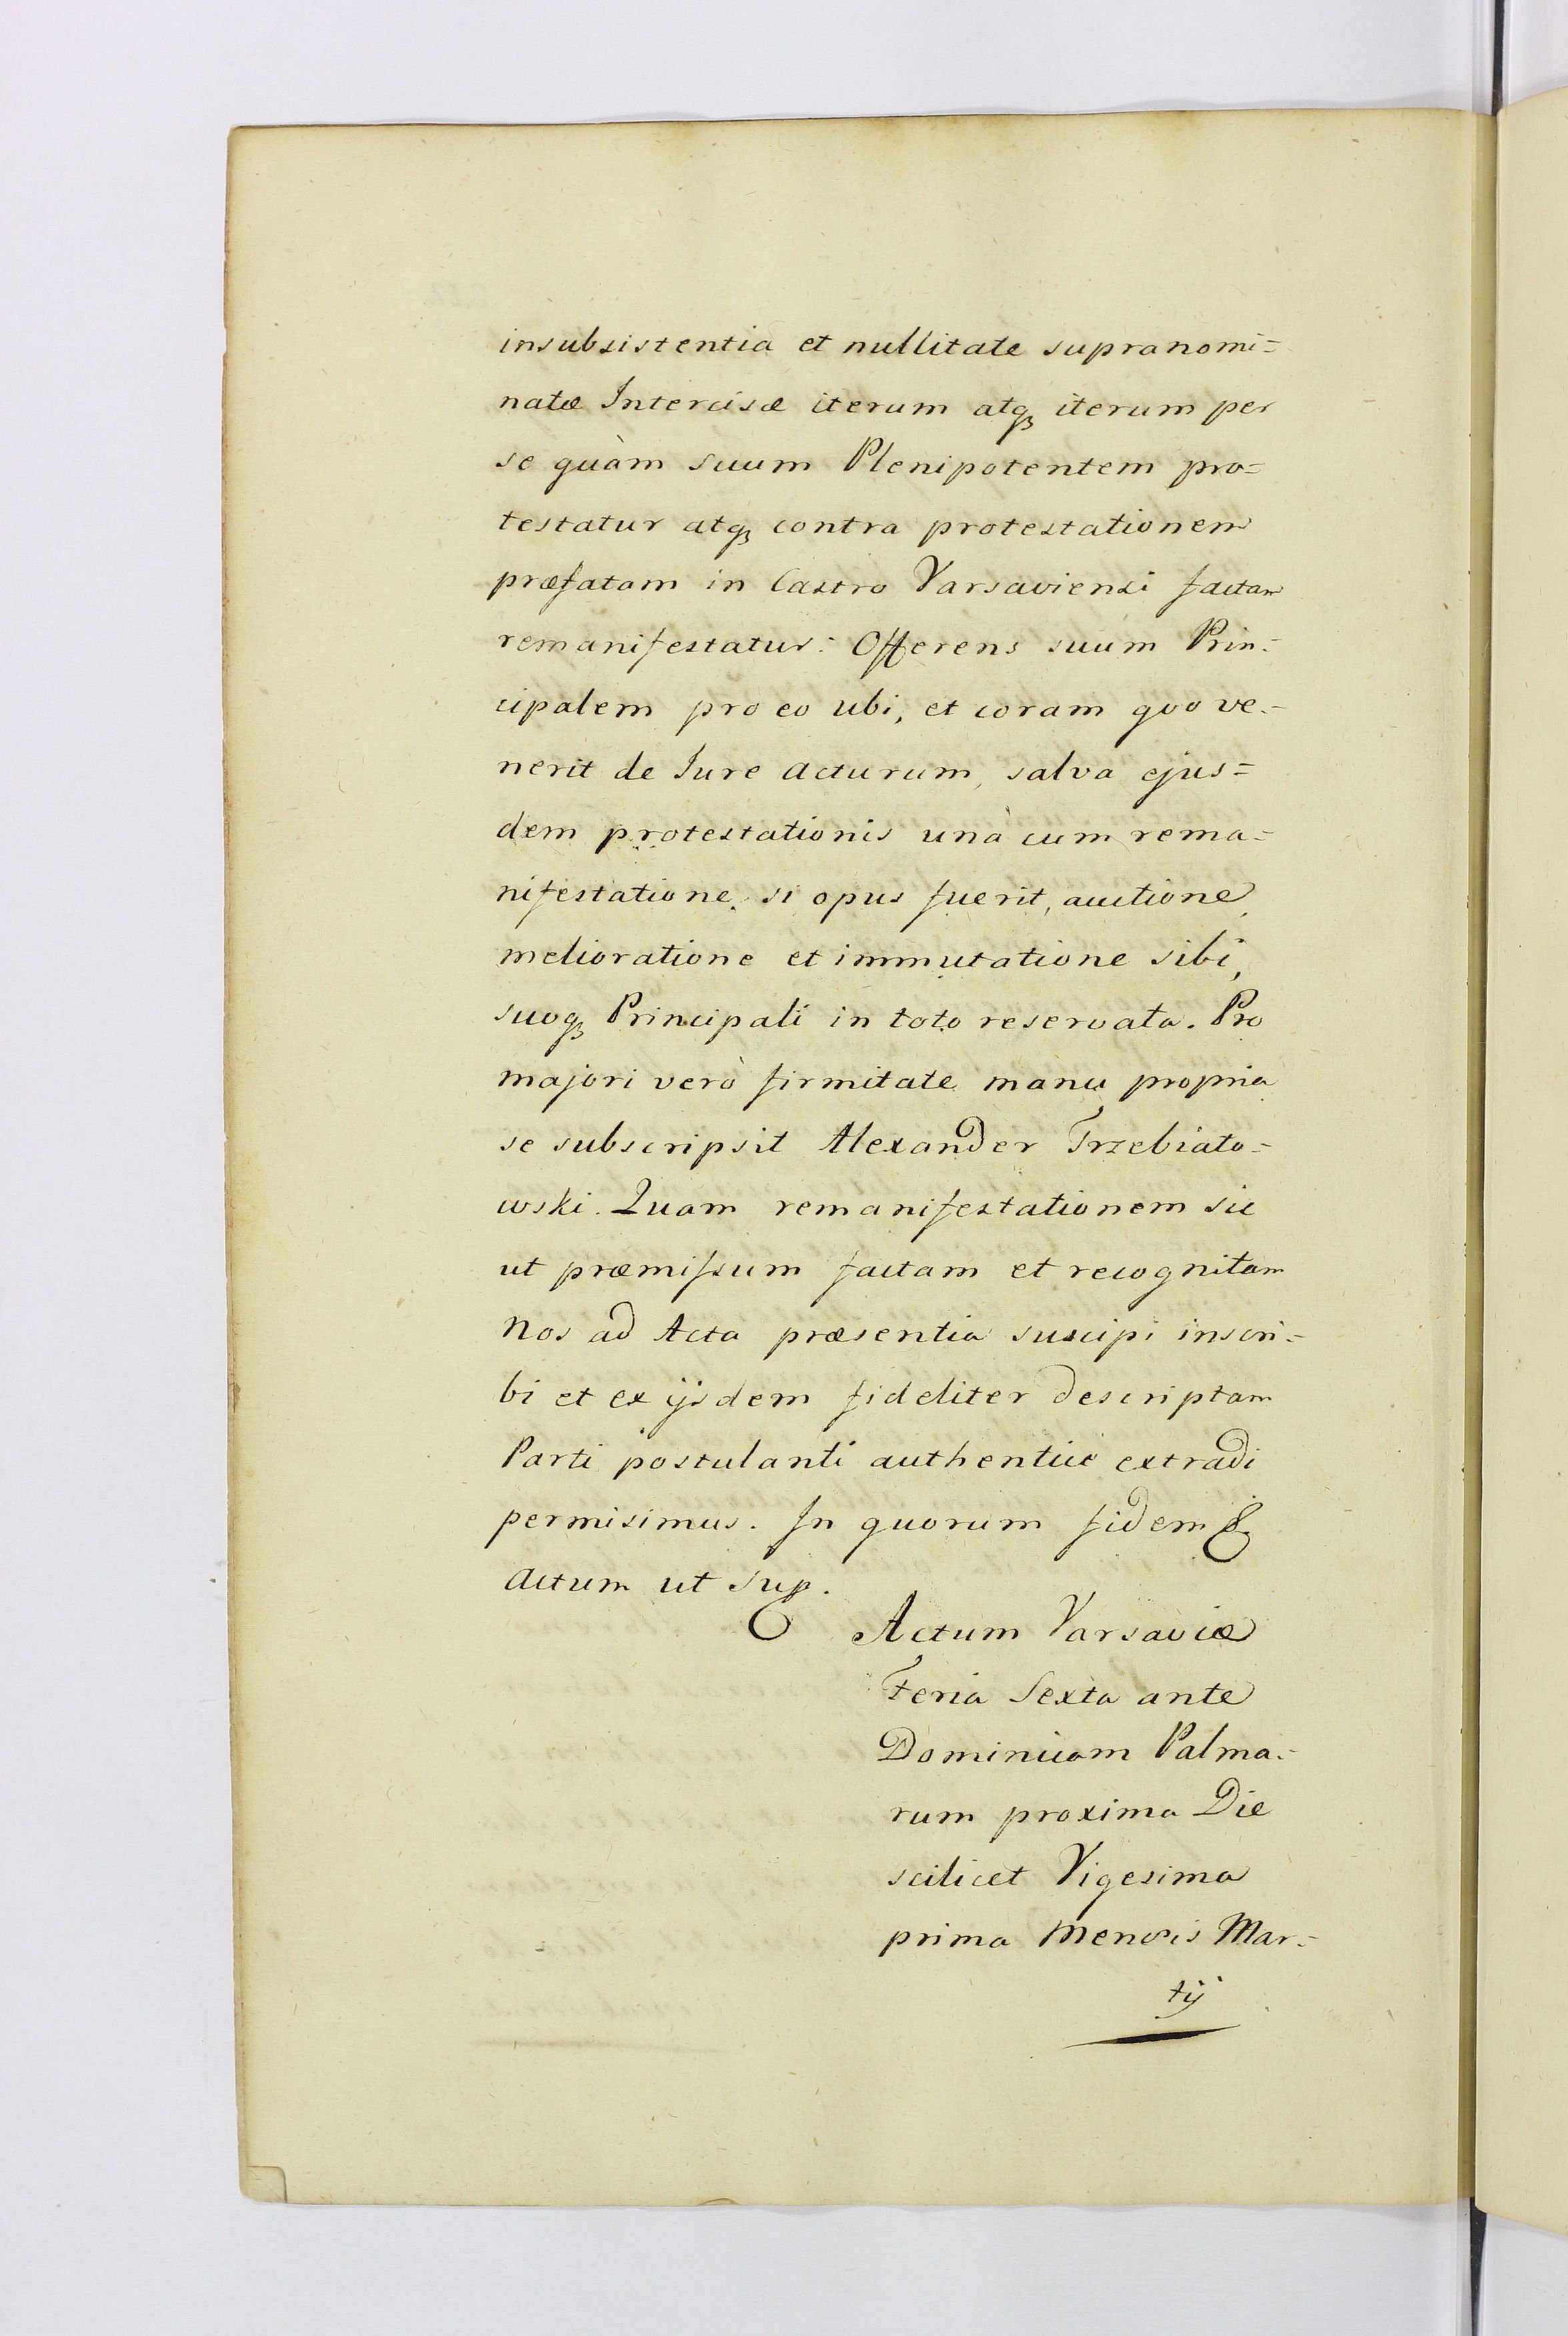 insubsistentia et nullitate supranomi=
natæ Intercisæ iterum atq₃ iterum per
se quàm suum Plenipotentem pro=
testatur atq₃ contra protestationem
præfatam in Castro Varsaviensi factam
remanifestatur: Offerens suum Prin=
cipalem pro eo ubi, et coram quo ve=
nerit de Jure acturum, salva ejus=
dem protestationis unà cum rema=
nifestatione, si opus fuerit, auctione,
melioratione et immutatione sibi,
suoq₃ Principali in toto reservata. Pro
majori verò firmitate manu propria
se subscripsit Alexander Trzebiato=
wski. Quam remanifestationem sic
ut præmissum factam et recognitam
Nos ad Acta præsentia suscipi inscri=
bi et ex ijsdem fideliter descriptam
Parti postulanti authenticè extradi
permisimus. In quorum fidem &
Actum ut sup.
Actum Varsaviæ
Feria Sexta ante
Dominicam Palma=
rum proxima Die
scilicet Vigesima
prima Mensis Mar=
tij